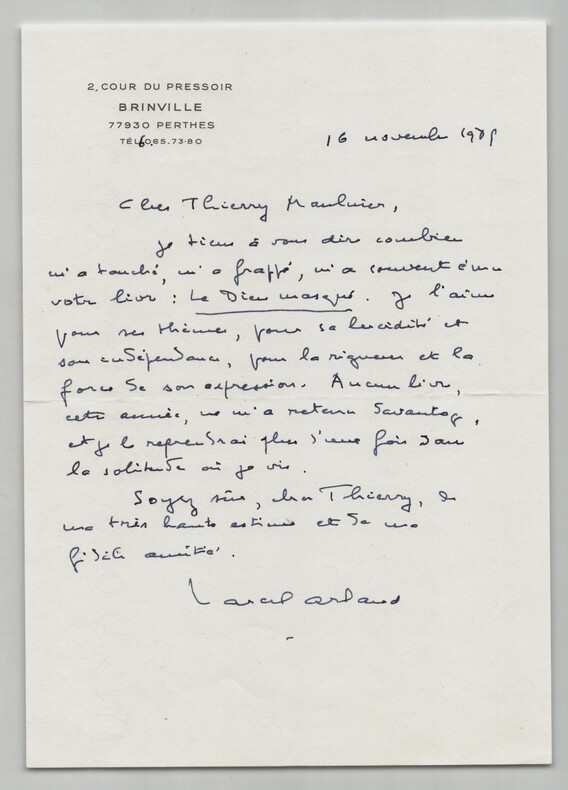 2, COUR DU PRESSOIR
BRINVILLE
77930 PERTHES
TÉL. 6.065.73-80
16 novembre 1985
Cher Thierry Maulnier,
je tiens à vous dire combien
m'a touché, m'a frappé, m'a souvent ému
votre livre : Le Dieu masqué. Je l'aime
pour ses thèmes, pour sa lucidité et
son indépendance, pour la rigueur et la
force de son expression. Aucun livre,
cette année, ne m'a retenu davantage,
et je le reprendrai plus d'une fois dans
la solitude où je vis.
Soyez sûr, cher Thierry, de
ma très haute estime et de ma
fidèle amitié.
Marcel Arland